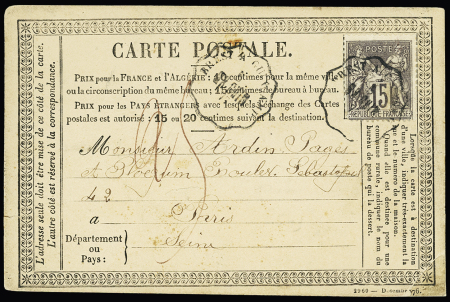 CARTE POSTALE.
PRIX pour la FRANCE et l'ALGÉRIE: 10 centimes pour la même ville
ou la circonscription du même bureau; 15 centimes de bureau à bureau.
PRIX pour les PAYS ÉTRANGERS avec lesquels l'échange des Cartes
postales est autorisé: 15 ou 20 centimes suivant la destination.
Monsieur Ardin Pagès
42
a Paris
Département Seine
ou
Pays:
L'adresse seule doit être mise de ce côté de la carte.
L'autre côté est réservé à la correspondance.
POSTE
15
REPUBLIQUE FRANCAISE
Lorsque la carte est à destination
d'une ville, indiquer très-exactement la
rue et le numéro de la maison.
Quand elle est destinée pour une
commune rurale, indiquer le nom du
bureau de poste qui la dessert.